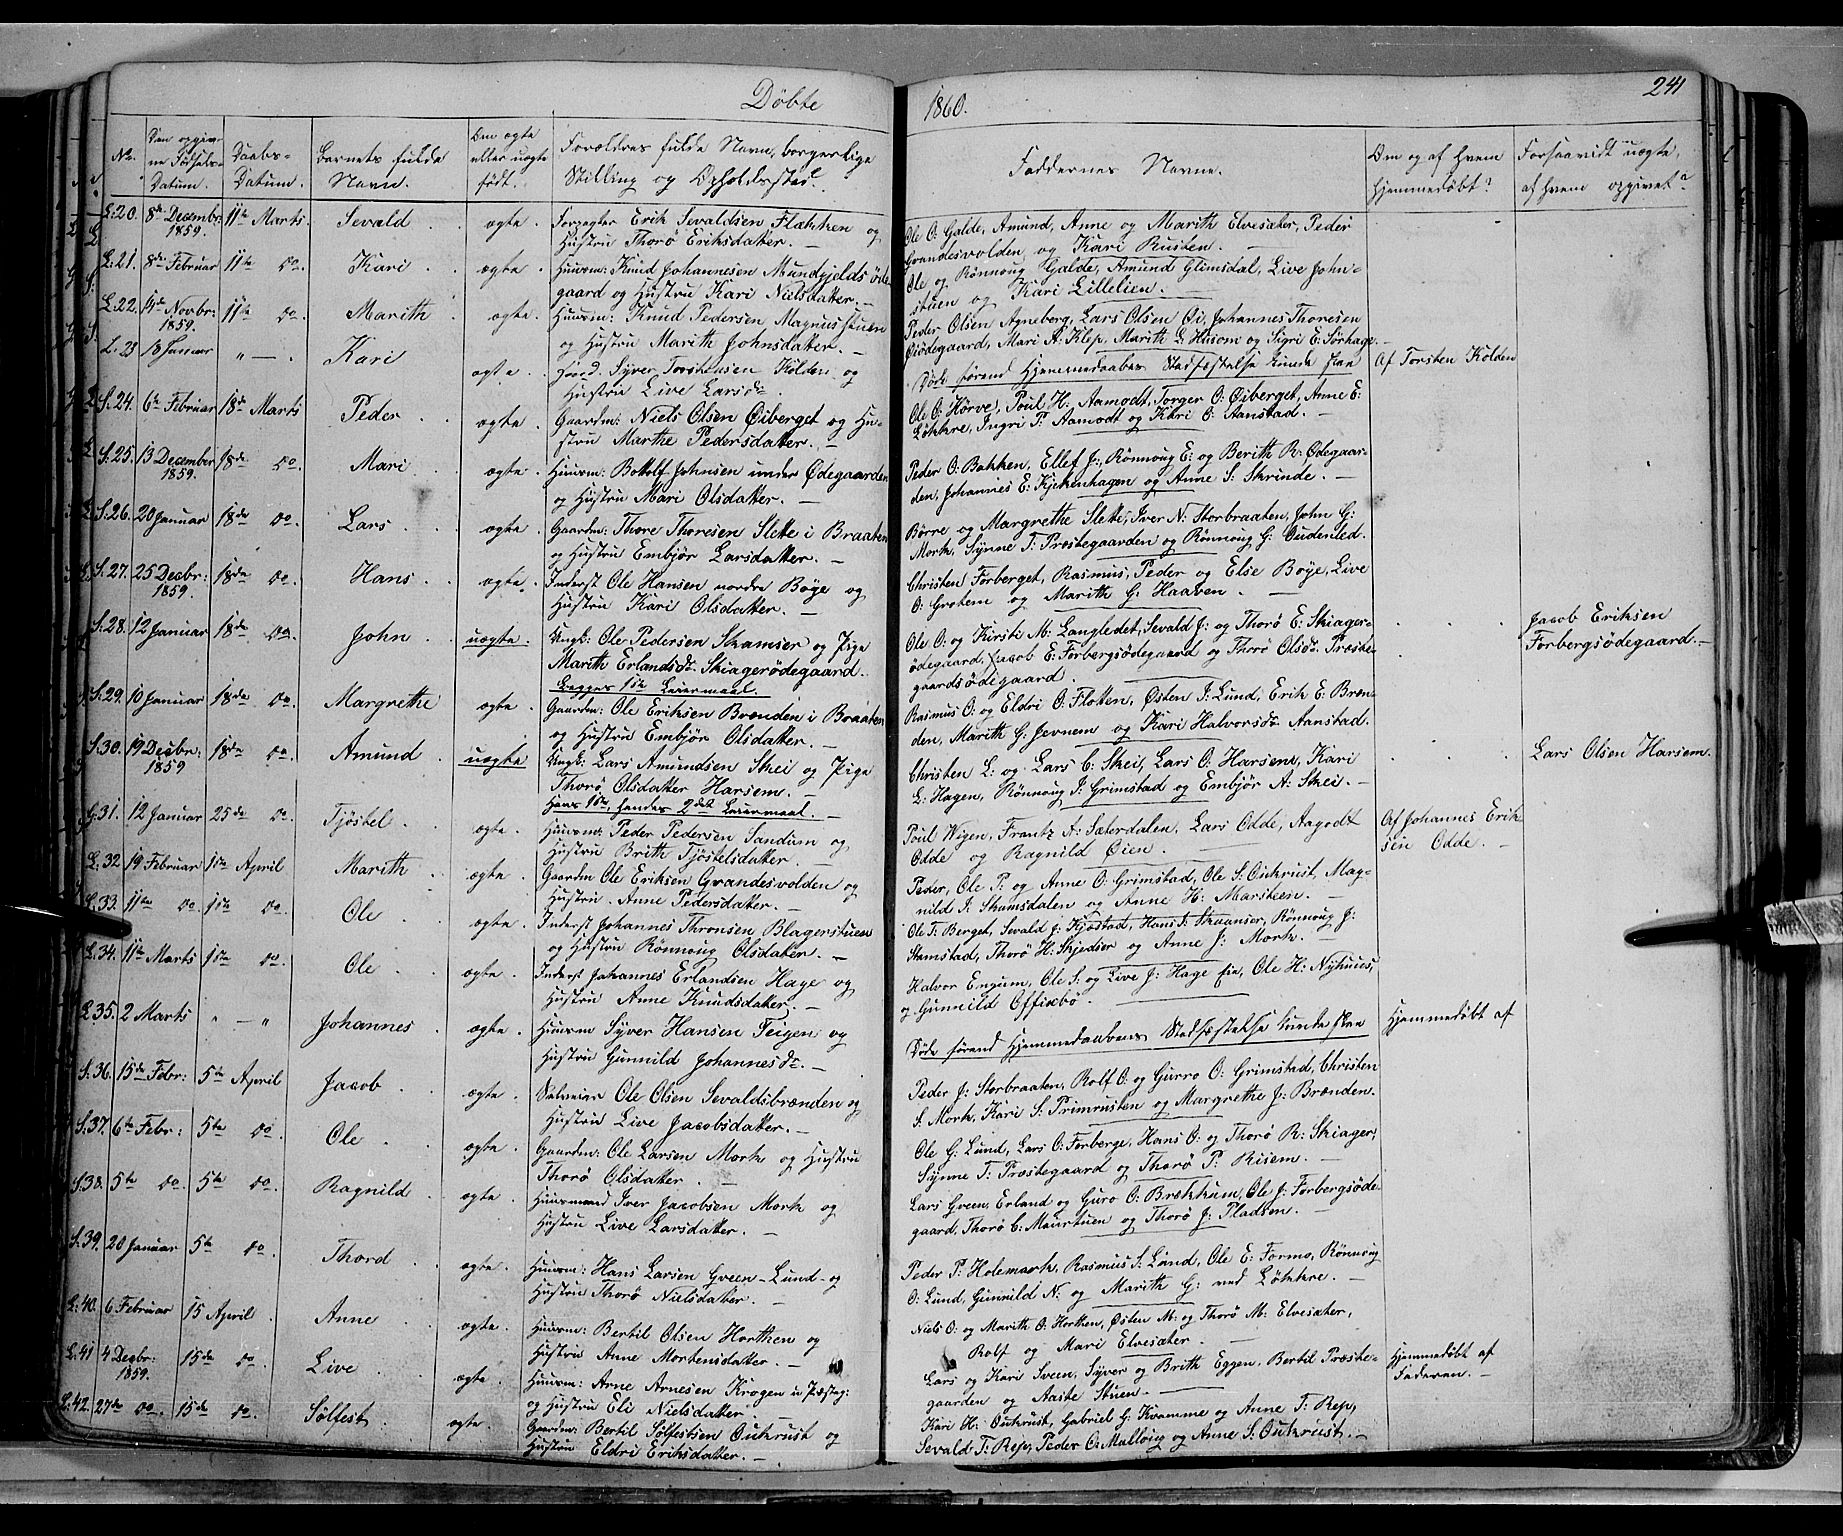 Döbte
1860.
241
No.
Den opgivne Födsels-Datum.
Daabs-Datum.
Barnets fulde Navn.
Om ægte eller uægte födt.
Forældres fulde Navn, borgerlige Stilling og Opholdssted.
Faddernes Navne.
Om og af hvem hjemmedöbt?
Forsaavidt uægte, af hvem opgivet?
L: 20. 8de Decembr: 1859. 11te Marts. Sevald ægte. Forpagter Erik Sevaldsen Flækken og
Hustru Thorö Eriksdatter. —
Ole O: Galde, Amund, Anne og Marith Elvesæter, Peder
Grandesvolden og Kari Rusten. —
L: 21. 8de Februar 11te do. Kari ægte. Huusm: Knud Johannesen Mundgjelds öde
gaard og Hustru Kari Nielsdatter. —
Ole og Rönnoug Galde, Amund Glimsdal, Live John-
stuen og Kari Lillelien. —
L: 22. 14de Novbr: 1859. 11te do. Marith ægte. Huusm: Knud Pedersen Magnusstuen
og Hustru Marith Johnsdatter. —
Peder Olsen Agneberg, Lars Olsen Öi, Johannes Thoresen
Öiödegaard, Mari A: Klep, Marith G: Husom og Sigri E: Sörhage. —
L: 23 18 Januar " — . Kari ægte. Gaard. Syver Torstensen Kolden og
Hustru Live Larsdr
Döde förend Hjemmedaabens Stadfæstelse kunde skee
Af Torsten Kolden
S: 24. 6te Februar 18de Marts Peder ægte. Gaardm: Niels Olsen Öiberget og Hu-
stru Marthe Pedersdatter. —
Ole O: Hörve, Poul H: Aamodt, Torger O: Öiberget, Anne E:
Lökkre, Ingri P: Aamodt og Kari O: Aanstad. —
S: 25. 13 December 1859. 18de do. Mari ægte. Huusm: Bottolf Johnsen under Ödegaarden
og Hustru Mari Olsdatter. —
Peder O: Bakken, Ellef J:, Rönnoug E: og Berith R: Ödegaar-
den, Johannes E: Kjekenhagen og Anne S: Skrinde. —
S: 26. 20 Januar 18de do. Lars ægte. Gaardm: Thore Thoresen Slette i Braaten
og Hustru Embjör Larsdatter. —
Börre og Margrethe Slette, Iver N: Storbraaten, John G:
Mork, Synne T: Præstegaarden og Rönnoug G: Oudenled.
S: 27. 25 Decbr: 1859. 18de do. Hans ægte. Inderst Ole Hansen nordre Böye og
Hustru Kari Olsdatter. —
Christen Forberget, Rasmus, Peder og Else Böye, Live
O: Grotem og Marith G: Haaven. —
S: 28. 12 Januar 18de do. John uægte. Ungk: Ole Pedersen Skamser og Pige
Marith Erlandsdr Skiagerödegaard.
Begges 1ste Leiermaal.
Ole O: og Kirsti M: Langledet, Sevald J: og Thorö E: Skiager-
ödegaard, Jacob E: Forbergsödegaard og Thorö Olsdr Præste-
gaardsödegaard.
Jacob Eriksen
Forbergsödegaard. —
S: 29. 10 Januar 18de do. Margrethe ægte. Gaardm: Ole Eriksen Brænden i Braaten
og Hustru Embjör Olsdatter. —
Rasmus O: og Eldri O: Flotten, Östen I: Lund, Erik E: Bræn-
den, Marith G: Jevnem og Kari Halvorsdr Aanstad.
S: 30. 19 Decbr: 1859 18de do. Amund uægte Ungk: Lars Amundsen Skei og Pige
Thorö Olsdatter Harsem.
Hans 1ste, hendes 2det Leiermaal. —
Christen L: og Lars C: Skei, Lars O: Harsem, Kari
L: Hagen, Rönnoug I: Grimstad og Embjör A: Skei. —
Lars Olsen Harsem.
G: 31. 12 Januar 25de do. Tjöstel ægte. Huusm: Peder Pedersen Sandum og
Hustru Brith Tjöstelsdatter. —
Poul Wigen, Frantz A: Sæterdalen, Lars Odde, Aagodt
Odde og Ragnild Öien. —
Af Johannes Erik-
sen Odde. —
L: 32 19 Februar 1ste April Marith ægte. Gaardm Ole Eriksen Grandesvolden og
Hustru. Anne Pedersdatter. —
Peder, Ole P: og Anne O: Grimstad, Ole S: Outrust, Mag-
nild I: Skamsdalen og Anne H: Marsteen. —
L: 33. 11te do 1ste do. Ole ægte. Inderst Johannes Thronsen Blagerstuen
og Hustru Rönnoug Olsdatter. —
Ole T: Berget, Sevald J: Kjöstad, Hans I: Skaanser, Rönnoug J:
Stamstad, Thorö H: Skjedser og Anne J: Mork. —
L: 34. 11te Marts 1ste do. Ole ægte. Inderst Johannes Erlandsen Hage og
Hustru Anne Knudsdatter. —
Halvor Engum, Ole S: og Live J: Hage eie, Ole H: Nyhuus,
og Gunnild Offiebö. —
L: 35. 2 Marts " — " Johannes ægte. Huusm Syver Hansen Teigen og
Hustru Gunnild Johannesdr. —
Döde förend Hjemmedaabens Stadfæstelse kunde skee
Hjemmedöbt af
S: 36. 15de Febr: 5te April Jacob ægte. Selveier Ole Olsen Sevaldsbrænden og
Hustru Live Jacobsdatter. —
Peder J: Storbraaten, Rolf O: og Gurro O: Grimstad, Christen
S: Mork, Kari S: Primrusten og Margrethe J: Brænden.
S: 37. 6te Febr: 5te do. Ole ægte. Gaardm: Ole Larsen Mork og Hustru
Thorö Olsdatter. —
Ole G: Lund, Lars O: Forberge, Hans O: og Thorö R: Skiager,
Synne T: Præstegaard og Thorö P: Risem. —
S: 38. 5te do. 5te do. Ragnild ægte. Huusmand Iver Jacobsen Mork og
Hustru Live Larsdatter. —
Lars Green, Erland og Guro O: Brækkum, Ole J: Forbergsöde-
gaard, Thorö C: Maurtuen og Thorö J: Pladsen. —
S: 39. 20 Januar 5te do Thord ægte. Huusm: Hans Larsen Green-Lund- og
Hustru Thorö Nielsdatter. —
Peder P: Holemork, Rasmus S: Lund, Ole E: Formo, Rönnoug
O: Lund, Gunnild N: og Marith G: ned Lökkre. —
L: 40. 6 Februar 15 April. Anne ægte. Huusm: Bertil Olsen Horthen og
Hustru Anne Mortensdatter. —
Niels O: og Marith O: Horthen, Östen M: og Thorö M: Elvesæter,
Rolf og Mari Elvesæter. —
L: 41 4 Decbr: 1859. 15de do. Live ægte. Huusm: Arne Arnesen Krogen u Præsteg:
og Hustru Eli Nielsdatter
Lars og Kari Sveen, Syver og Brith Eggen, Bertil Præste-
gaarden og Aaste Stuen. —
Hjemmedöbt af
Faderen. —
L: 42. 27de do. 15de do. Sölfest ægte. Gaardm: Bertil Sölfestsen Outrust og
Hustru Eldri Eriksdatter. —
Kari H: Outrust, Gabriel G: Kvamme og Anne T: Rep,
Sevald T: Rep, Peder O: Mulloug og Anne S: Outrust. —